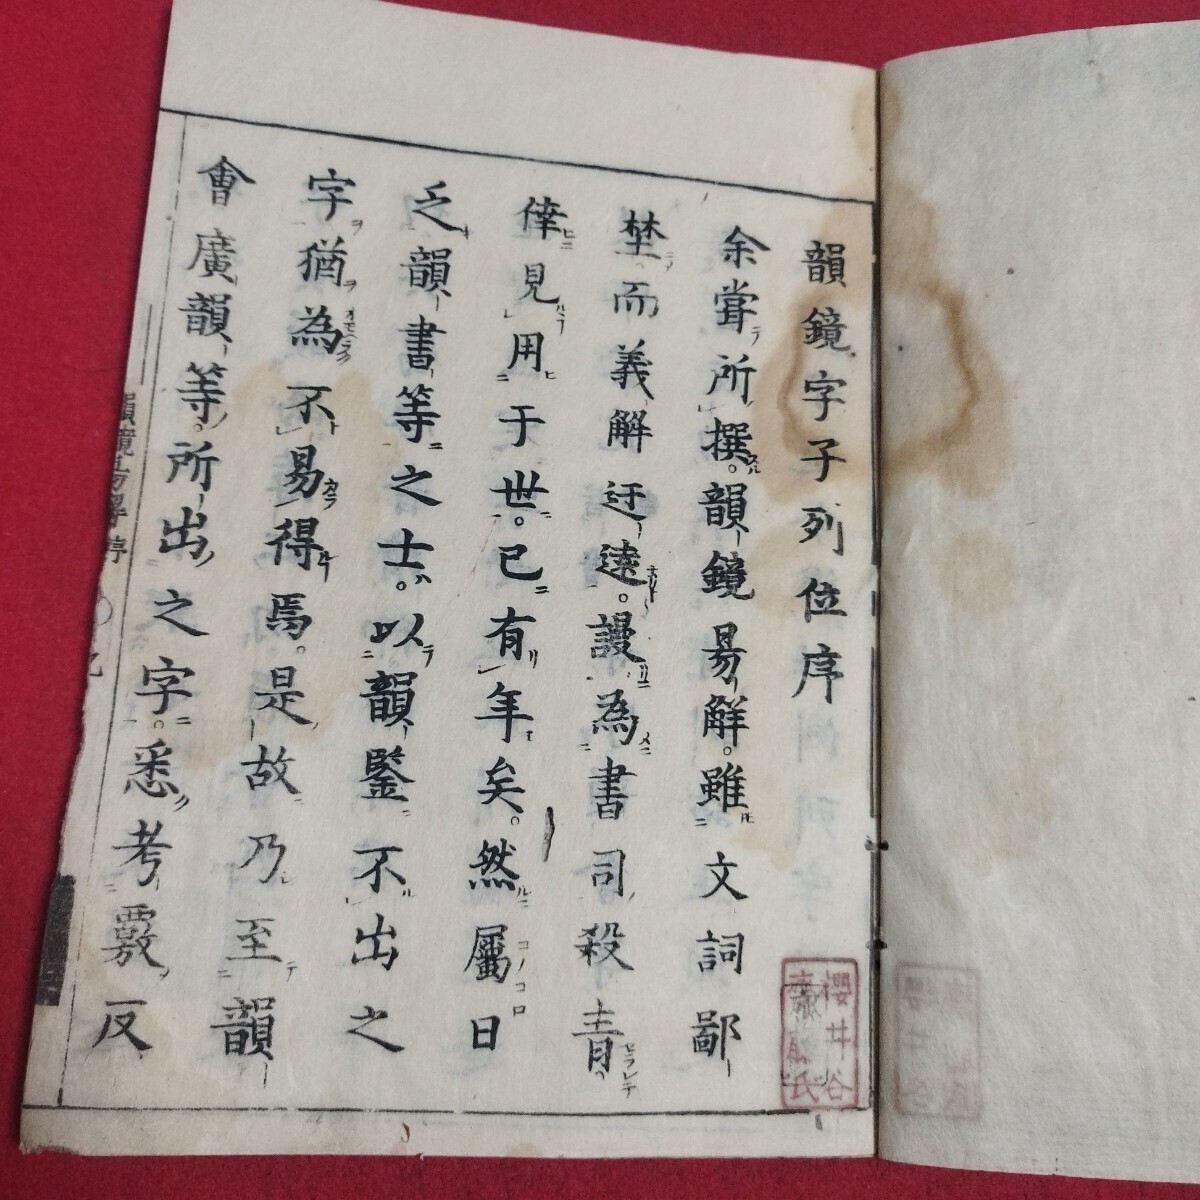 韻鏡字子列位序
余嘗所撰韻鏡易解雖文詞鄙
埜而義解迂遠謾為書司殺青
倖見用于世已有年矣然屬日
乏韻書等之士以韻鑒不出之
字猶為不易得焉是故乃至韻
會廣韻等所出之字悉考覈反
韻鏡易解序
櫻井谷
氏